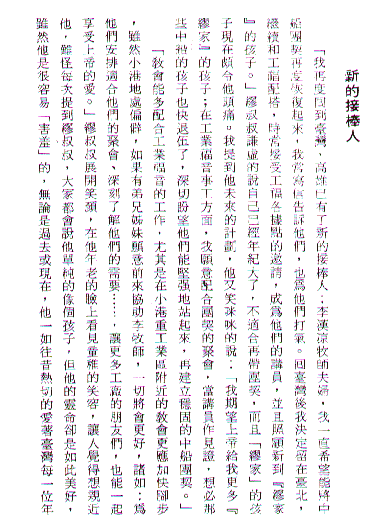 新的接棒人
「我再度回到臺灣，高雄已有了新的接棒人：李漢涼牧師夫婦，我一直希望能將中
船團契再度恢復起來，我常寫信告訴他們，也為他們打氣。回臺灣後我決定留在臺北，
繼續和工福配搭，時常接受工福各據點的邀請，成為他們的講員，並且照顧新到『繆家
』的孩子。」繆叔叔謙虛的說自己已經年紀大了，不適合再帶團契，而且「繆家」的孩
子現在頗令他頭痛。我提到他未來的計劃，他又笑咪咪的說：「我期望上帝給我更多『
繆家』的孩子；在工業福音事工方面，我願意配合團契的聚會，當講員作見證，想必那
些中船的孩子也快退伍了，深切盼望他們能堅强地站起來，再建立穩固的中船團契。」
「教會能多配合工業福音的工作，尤其是在小港重工業區附近的教會更應加快腳步
，雖然小港地處偏僻，如果有弟兄姊妹願意前來協助李牧師，一切將會更好，諸如：為
他們安排適合他們的聚會、深刻了解他們的需要……，讓更多工廠的朋友們，也能一起
享受上帝的愛。」繆叔叔展開笑顏，在他年老的臉上看見童稚的笑容，讓人覺得想親近
他，難怪每次提到繆叔叔，大家都會說他單純的像個孩子，但他的靈命卻是如此美好，
雖然他是很容易「害羞」的，無論是過去或現在，他一如往昔熱切的愛著臺灣每一位年